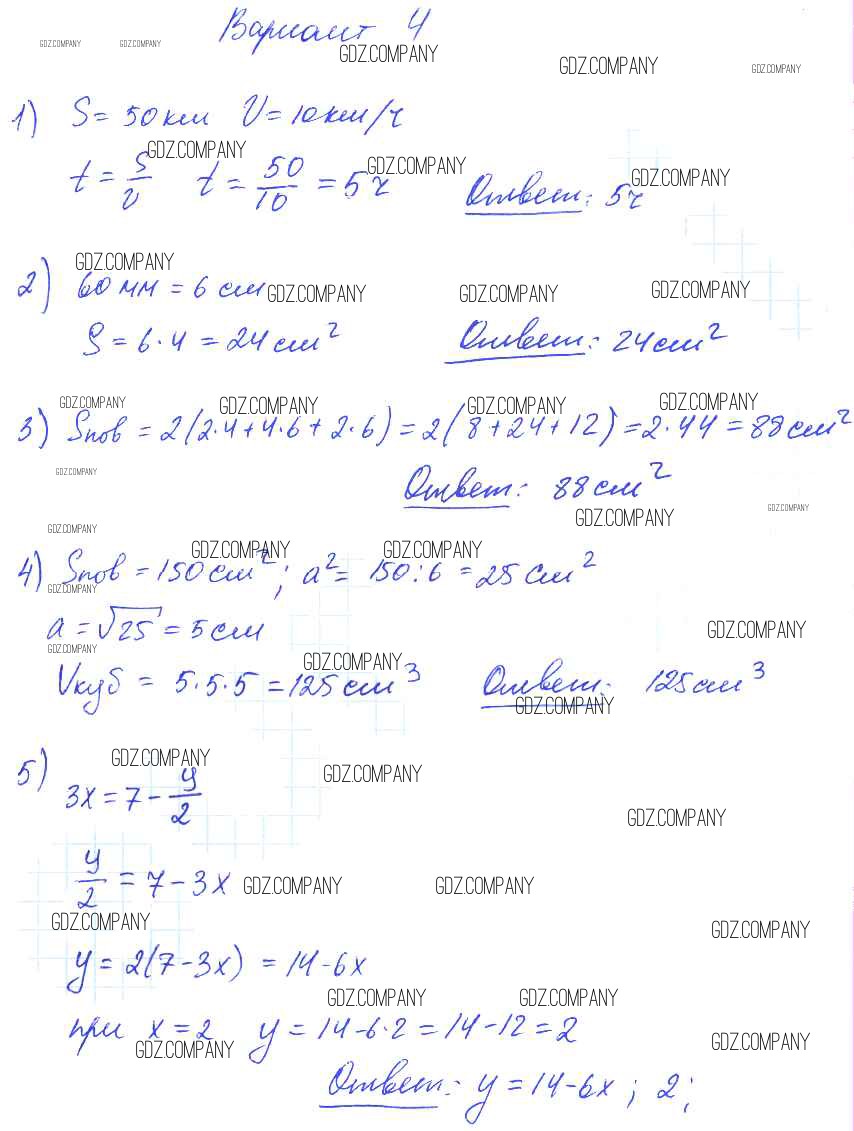 Вариант 4
GDZ.COMPANY GDZ.COMPANY GDZ.COMPANY GDZ.COMPANY GDZ.COMPANY
1) S = 50 км V = 10 км/ч
GDZ.COMPANY GDZ.COMPANY GDZ.COMPANY
t = S/v t = 50/10 = 5 ч Ответ: 5ч
GDZ.COMPANY
2) 60 мм = 6 см
GDZ.COMPANY GDZ.COMPANY GDZ.COMPANY
S = 6·4 = 24 см² Ответ: 24 см²
GDZ.COMPANY GDZ.COMPANY GDZ.COMPANY GDZ.COMPANY
3) Sпов = 2(2·4+4·6+2·6) = 2(8+24+12) = 2·44 = 88 см²
GDZ.COMPANY
Ответ: 88 см²
GDZ.COMPANY GDZ.COMPANY
GDZ.COMPANY GDZ.COMPANY GDZ.COMPANY
4) Sпов = 150 см²; a² = 150:6 = 25 см²
GDZ.COMPANY
a = √25 = 5 см
GDZ.COMPANY
GDZ.COMPANY GDZ.COMPANY
Vкуб = 5·5·5 = 125 см³ Ответ: 125 см³
GDZ.COMPANY
5)
GDZ.COMPANY GDZ.COMPANY
3x = 7 - y/2
GDZ.COMPANY
y/2 = 7 - 3x
GDZ.COMPANY GDZ.COMPANY
GDZ.COMPANY GDZ.COMPANY
y = 2(7-3x) = 14-6x
GDZ.COMPANY GDZ.COMPANY
при x = 2 y = 14-6·2 = 14-12 = 2
GDZ.COMPANY GDZ.COMPANY
Ответ: y = 14-6x; 2;